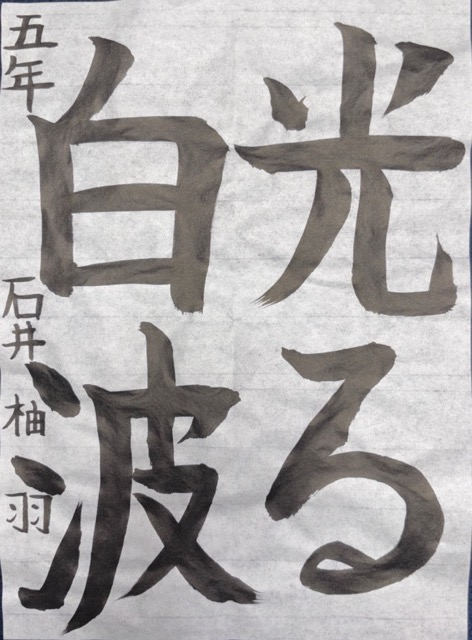 光る
白波
五年 石井柚羽